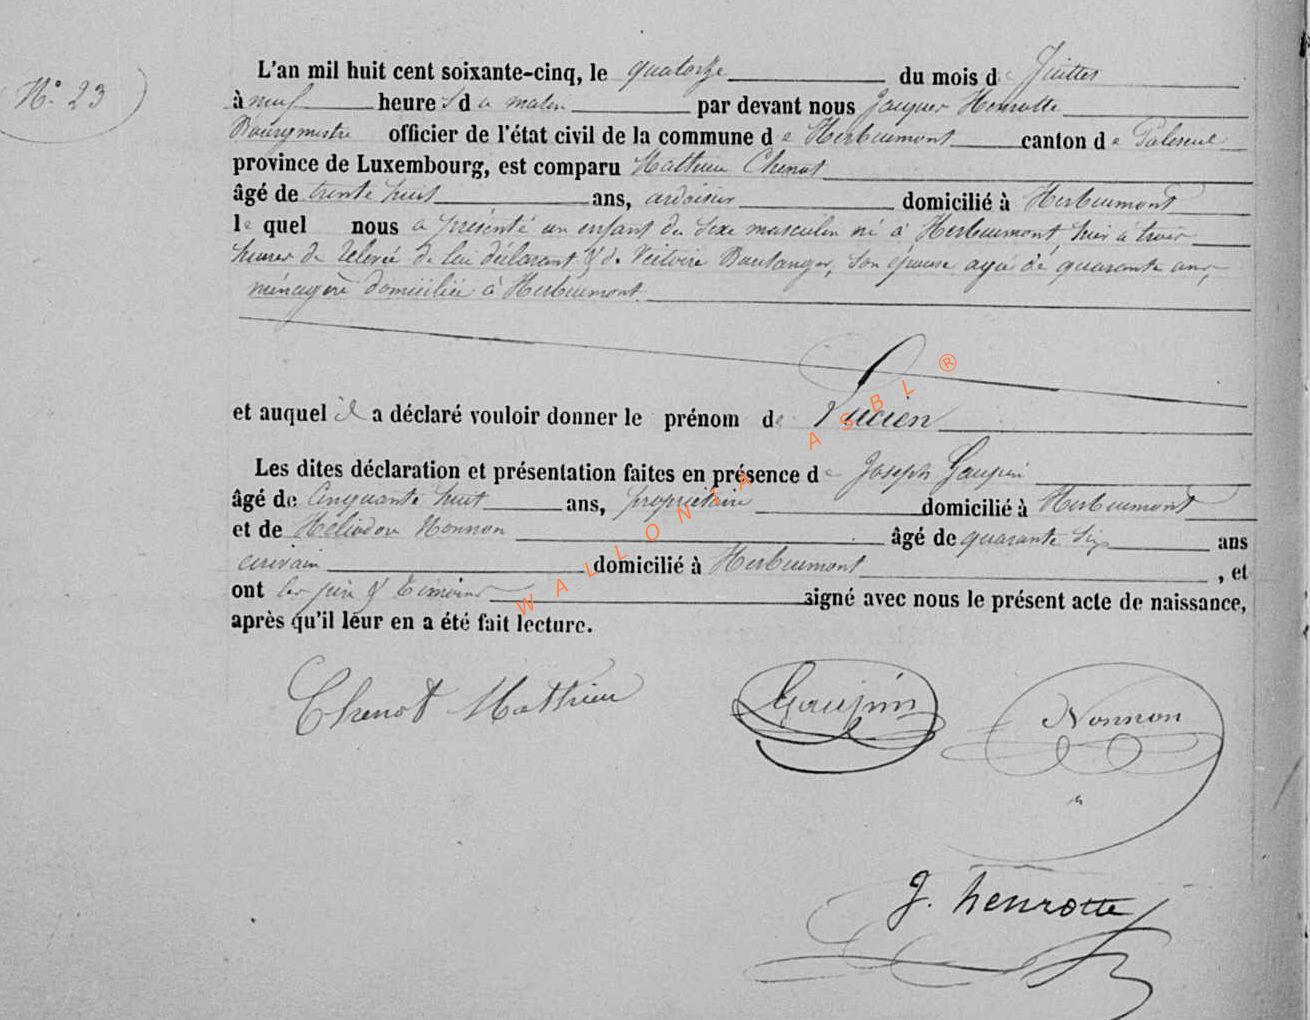 N° 23
L'an mil huit cent soixante-cinq, le quatorze du mois de Juillet
à neuf heures du matin par devant nous Jacques Henrotte
Bourgmestre officier de l'état civil de la commune de Herbeumont canton de Paliseul
province de Luxembourg, est comparu Mathieu Chenot
âgé de trente huit ans, ardoisier domicilié à Herbeumont
lequel nous a présenté un enfant du sexe masculin né à Herbeumont, hier à trois
heures de relevée de lui déclarant & de Victoire Boulanger, son épouse agée de quarante ans,
ménagère domiciliée à Herbeumont
et auquel il a déclaré vouloir donner le prénom de Lucien
Les dites déclaration et présentation faites en présence de Joseph Gaupin
âgé de cinquante huit ans, propriétaire domicilié à Herbeumont
et de Héliodore Nonnon âgé de quarante six ans
écrivain domicilié à Herbeumont, et
ont les père & témoins signé avec nous le présent acte de naissance,
après qu'il leur en a été fait lecture.
Chenot Mathieu
Gaupin
Nonnon
J. henrotte
WALLONIA ASBL ®